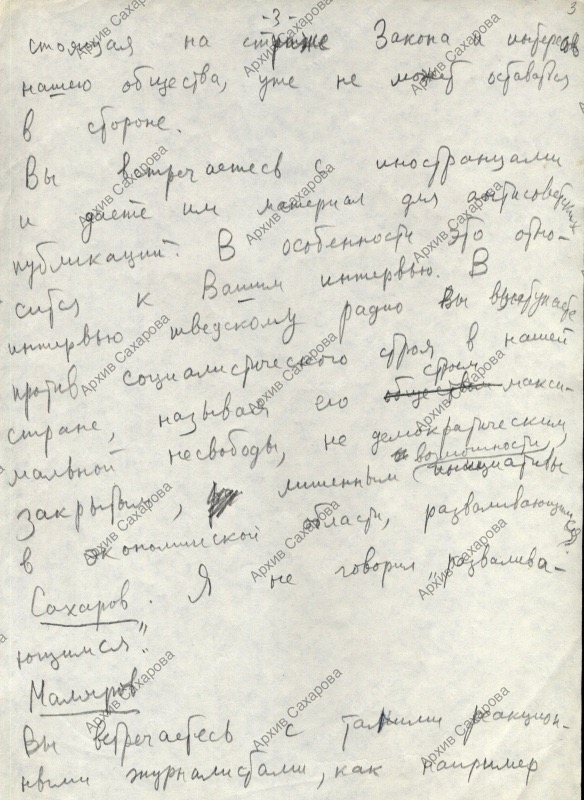 -3-
3
стоящая на страже Закона и интересов
нашего общества, уже не может оставаться
в стороне.
Вы встречаетесь с иностранцами
и даете им материал для антисоветских
публикаций. В особенности это отно-
сится к Вашим интервью. В
интервью шведскому радио Вы выступаете
против социалистического строя в нашей
стране, называя его строем макси-
мальной несвободы, не демократическим,
закрытым, лишенным возможности инициативы
в экономической области, разваливающимся.
Сахаров. Я не говорил „развалива-
ющимся".
Маляров
Вы встречаетесь с такими реакцион-
ными журналистами, как например
Архив Сахарова